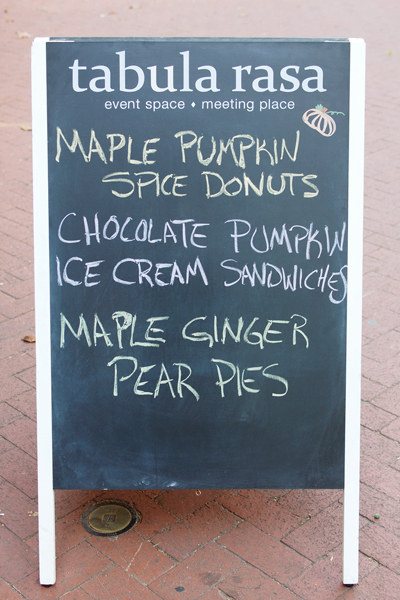 tabula rasa
event space • meeting place
MAPLE PUMPKIN
SPICE DONUTS
CHOCOLATE PUMPKIN
ICE CREAM SANDWICHES
MAPLE GINGER
PEAR PIES